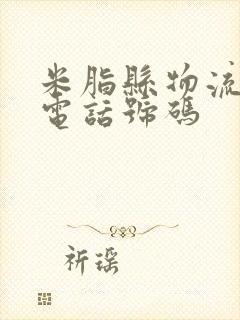 米脂縣物流
電話號碼
祈瑤